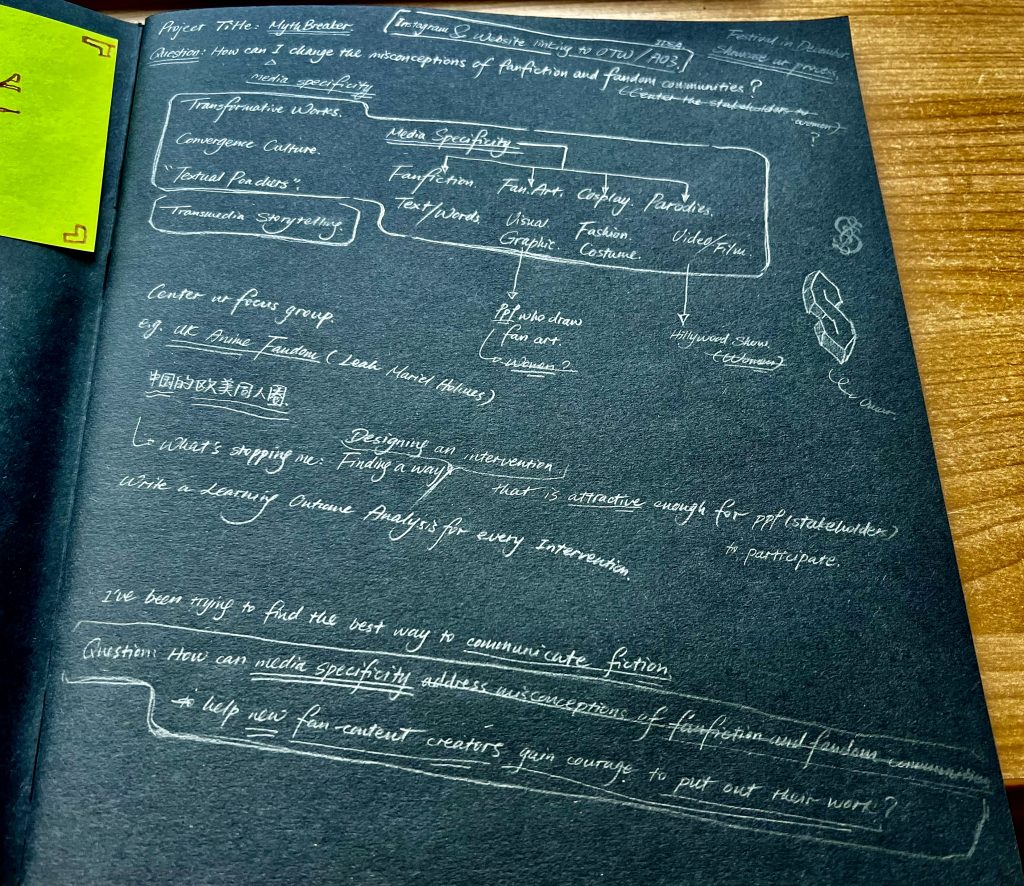 Project Title: MythBreaker.
Instagram & Website linking to OTW/AO3.
Festival in December
Showcase ur process.
Question: How can I change the misconceptions of fanfiction and fandom communities?
media specificity
(Center the stakeholders to women)
?
Transformative Works.
Convergence Culture.
"Textual Poachers".
Transmedia Storytelling.
Media Specificity
Fanfiction. Fan Art. Cosplay. Parodies.
Text/Words Visual Graphic. Fashion. Costume. Video/Film
ppl who draw
fan art.
Women?
Hillywood Show.
(Women)
Center ur focus group.
E.g. UK Anime Fandom (Leah Mariel Holmes)
中国的欧美同人圈.
What's stopping me: Finding a way
Designing an intervention
that is attractive enough for ppl (stakeholders)
to participate.
Write a Learning Outcome Analysis for every Intervention.
I've been trying to find the best way to communicate fiction
Question: How can media specificity address misconceptions of fanfiction and fandom communities
to help new fan-content creators gain courage to put out their work?